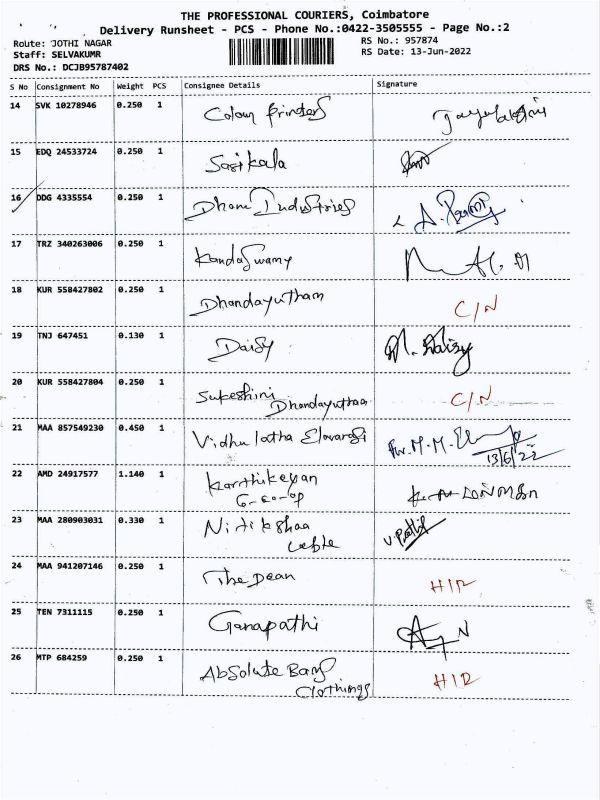 THE PROFESSIONAL COURIERS, Coimbatore
Delivery Runsheet - PCS - Phone No.:0422-3505555 - Page No.:2
Route: JOTHI NAGAR RS No.: 957874
Staff: SELVAKUMR RS Date: 13-Jun-2022
DRS No.: DCJB95787402
S No Consignment No Weight PCS Consignee Details Signature
14 SVK 10278946 0.250 1 Colour Printers
15 EDQ 24533724 0.250 1 Sasikala
16 DDG 4335554 0.250 1 Dhani Industries
17 TRZ 340263006 0.250 1 KandaSwamy
18 KUR 558427802 0.250 1 Dhandayutham C/N
19 TNJ 647451 0.130 1 Daisy M. Daisy
20 KUR 558427804 0.250 1 Sukeshini C/N
Dhandayutham
21 MAA 857549230 0.450 1 Vidhu latha Elavarasi
13/6/22
22 AMD 24917577 1.140 1 Karthikeyan
Co-op
23 MAA 280903031 0.330 1 Nitikshaa
24 MAA 941207146 0.250 1 The Dean
25 TEN 7311115 0.250 1 Ganapathi
26 MTP 684259 0.250 1 Absolute Bang
Clothings